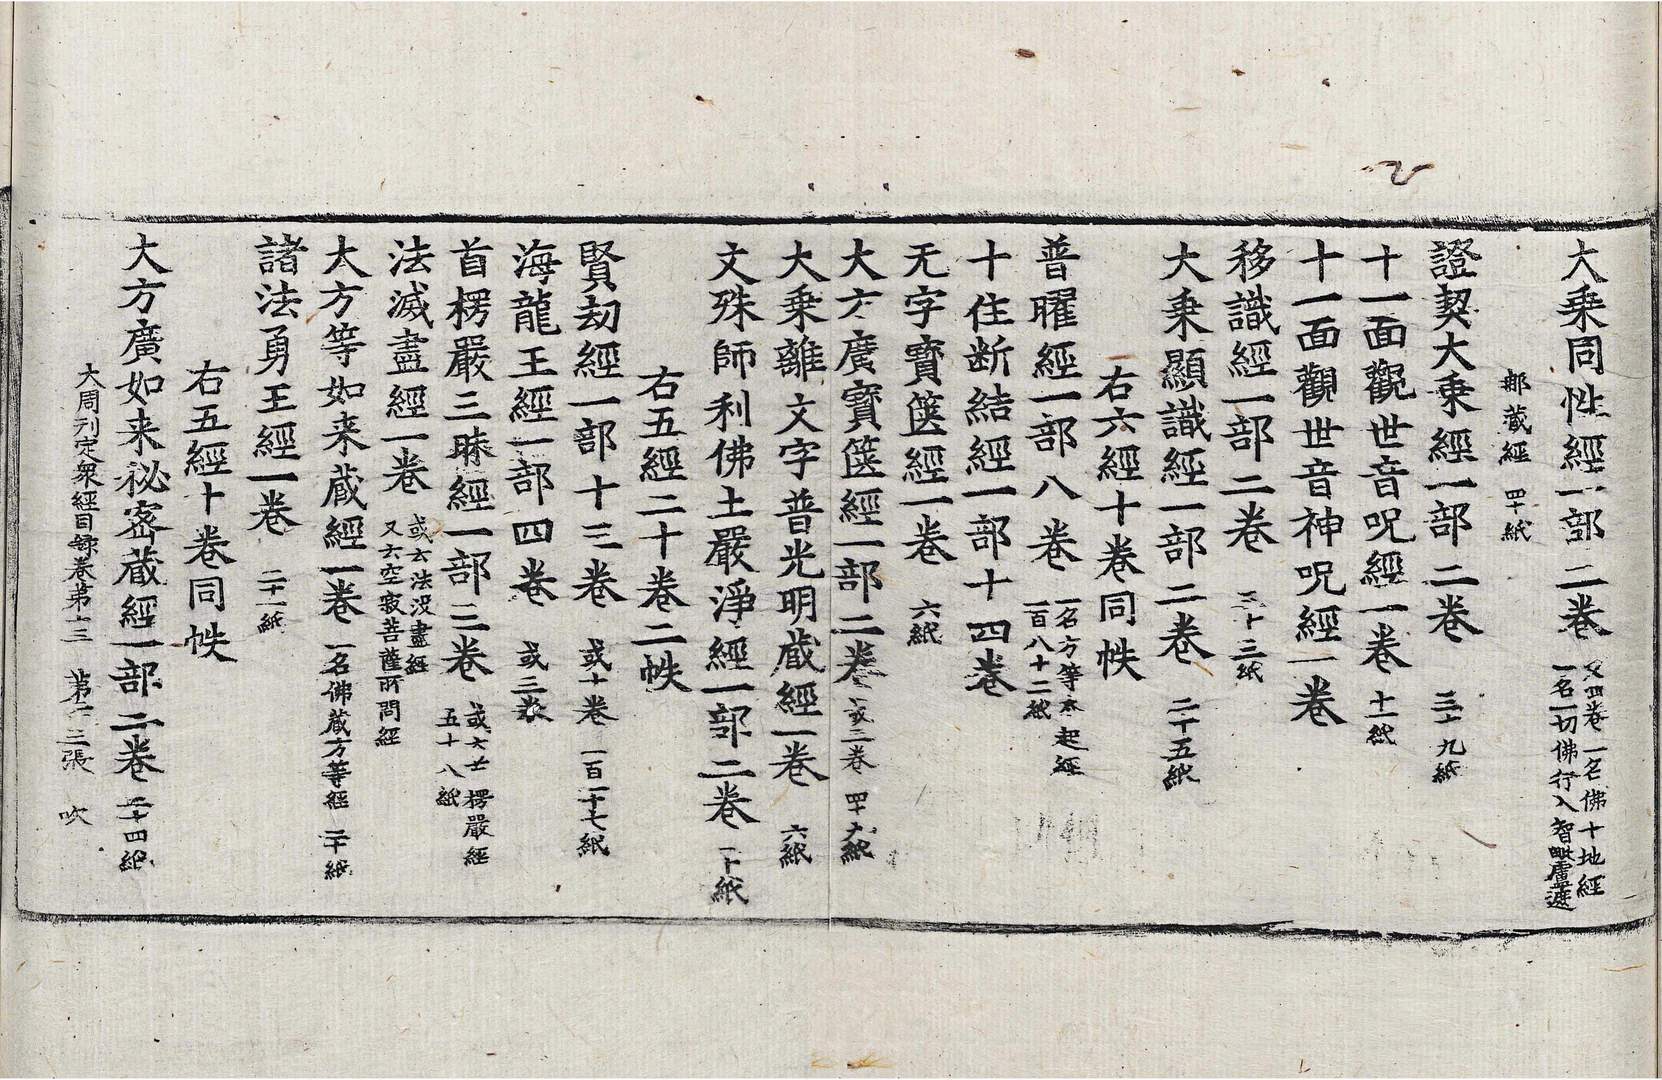 大乗同性經一部二巻 又四卷一名佛十地經
一名一切佛行入智毗盧遮
那蔵經 四十紙
證契大乗經一部二巻 三十九紙
十一面觀世音呪經一巻 十一紙
十一面觀世音神呪經一巻
移識經一部二巻 三十三紙
大乗顯識經一部二巻 二十五紙
右六經十巻同帙
普曜經一部八巻 一名方等本起經
一百八十二紙
十住断結經一部十四巻
无字寳篋經一巻 六紙
大方廣寳篋經一部二巻 或三巻 四十六紙
大乗離文字普光明蔵經一巻 六紙
文殊師利佛土嚴淨經一部二巻 二十紙
右五經二十巻二帙
賢刧經一部十三巻 或十巻 一百一十七紙
海龍王經一部四巻 或三巻
首楞嚴三昧經一部三巻 或六 楞嚴經
五十八紙
法滅盡經一巻 或云法没盡經
又云空寂菩薩所問經
大方等如来蔵經一巻 一名佛蔵方等經 二十紙
諸法勇王經一巻 二十一紙
右五經十巻同帙
大方廣如来祕密蔵經一部二巻 三十四紙
大周刊定衆經目録巻第十三 第十三張 吹